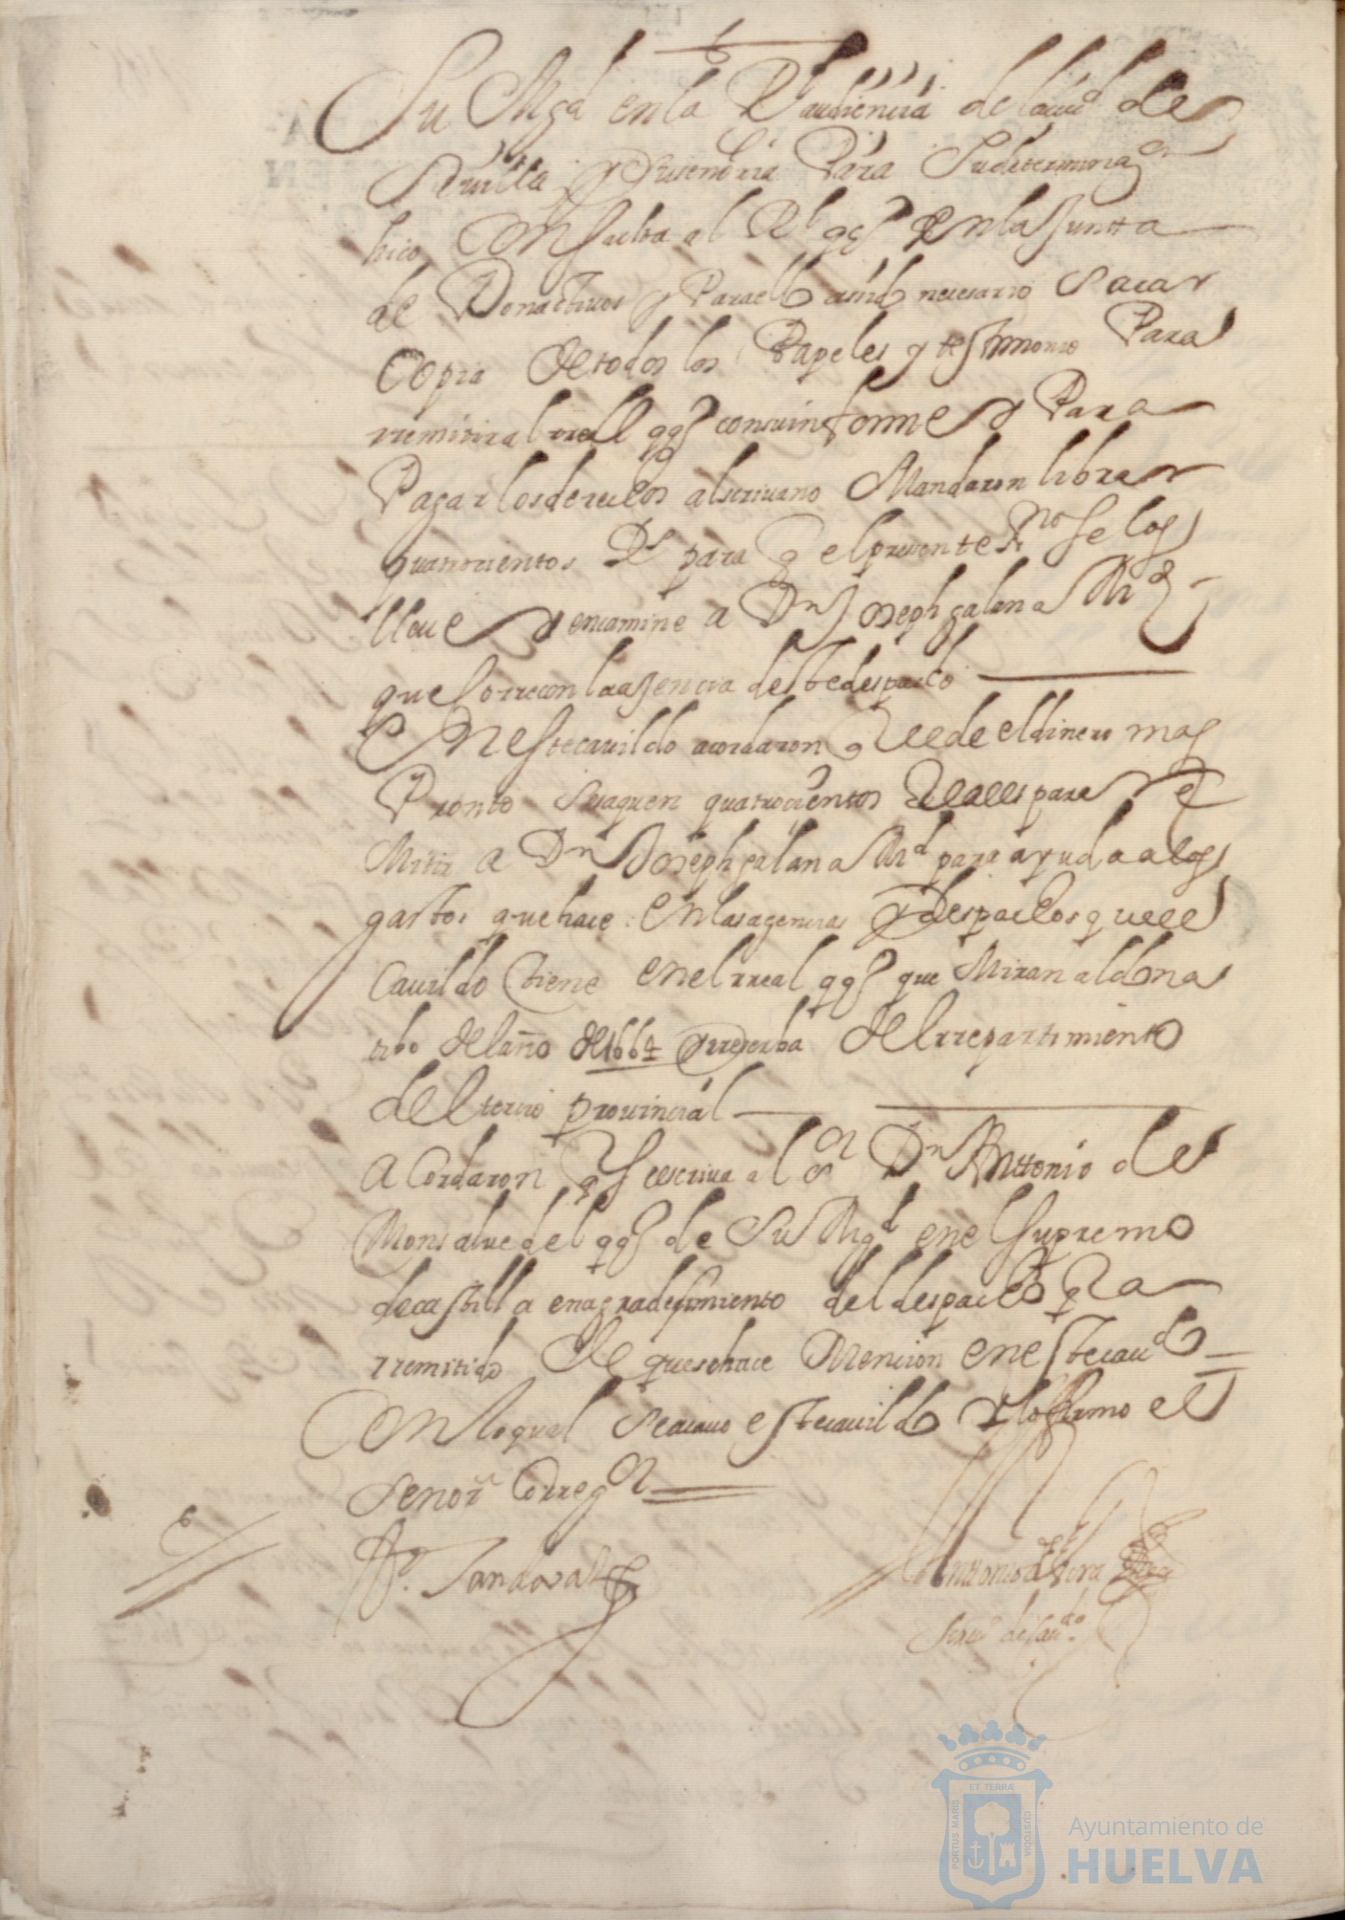 Su Mgd en la Rl audiencia de la ciud de
Sevilla y Susenoria Para Su determinaon
hico Consulta al Rl qqo en la Junta
de Donativos y Para ello asido necesario Sacar
Copia de todos los Papeles y testimonio Para
rremitir al rreal qqo con su informe y Para
Pagar los derechos al scrivano Mandaron librar
quatrocientos Rs para q el presente sno se los
lleve y encamine a Dn Joseph galan a Md
que Corre con la agencia deste despacho
En este cavildo acordaron q de el dinero mas
Pronto Se saquen quatrocientos Reales para rre
Mitir a Dn Joseph galan a Md para ayuda a los
gastos que hace en las agencias y despachos que el
Cavildo tiene en el rreal qqo que Miran al dona
tibo del año de 1664 y rreserba del rrepartimiento
del tercio provincial
Acordaron q Se escriva al sor Dn Anttonio de
Monsalve del qqo de Su Mgd en el Supremo
de castilla en agradesimiento del despacho q a
rremitido de que se hace Mencion en este cavdo
Con lo qual Se acavo este cavildo y lo firmo el
Senor Corregor
Sandoval
Antonio de
Scrivo de cavdo
ET TERRÆ
PORTUS MARIS
CUSTODIA
Ayuntamiento de
HUELVA